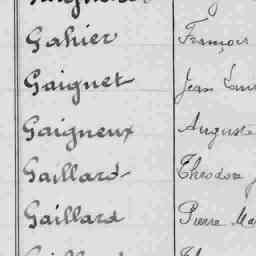 Gahier François
Gaignet Jean
Gaigneux Auguste
Gaillard Théodore
Gaillard Pierre